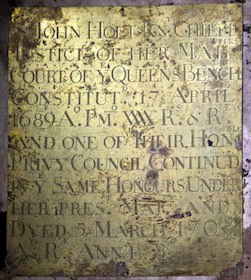 Sr JOHN HOLT KNt. CHIEFE
JUSTICE OF HER MATIES
COURT OF Y QUEENS BENCH
CONSTITUT. 17 APRIL
1689 A. PM. WM R. & R.
AND ONE OF THEIR HONBLE
PRIVY COUNCIL CONTINUD
IN Y SAME HONOURS UNDER
HER PRES. MAT. AND
DYED 5 MARCH 170
A. R. ANNÆ 8